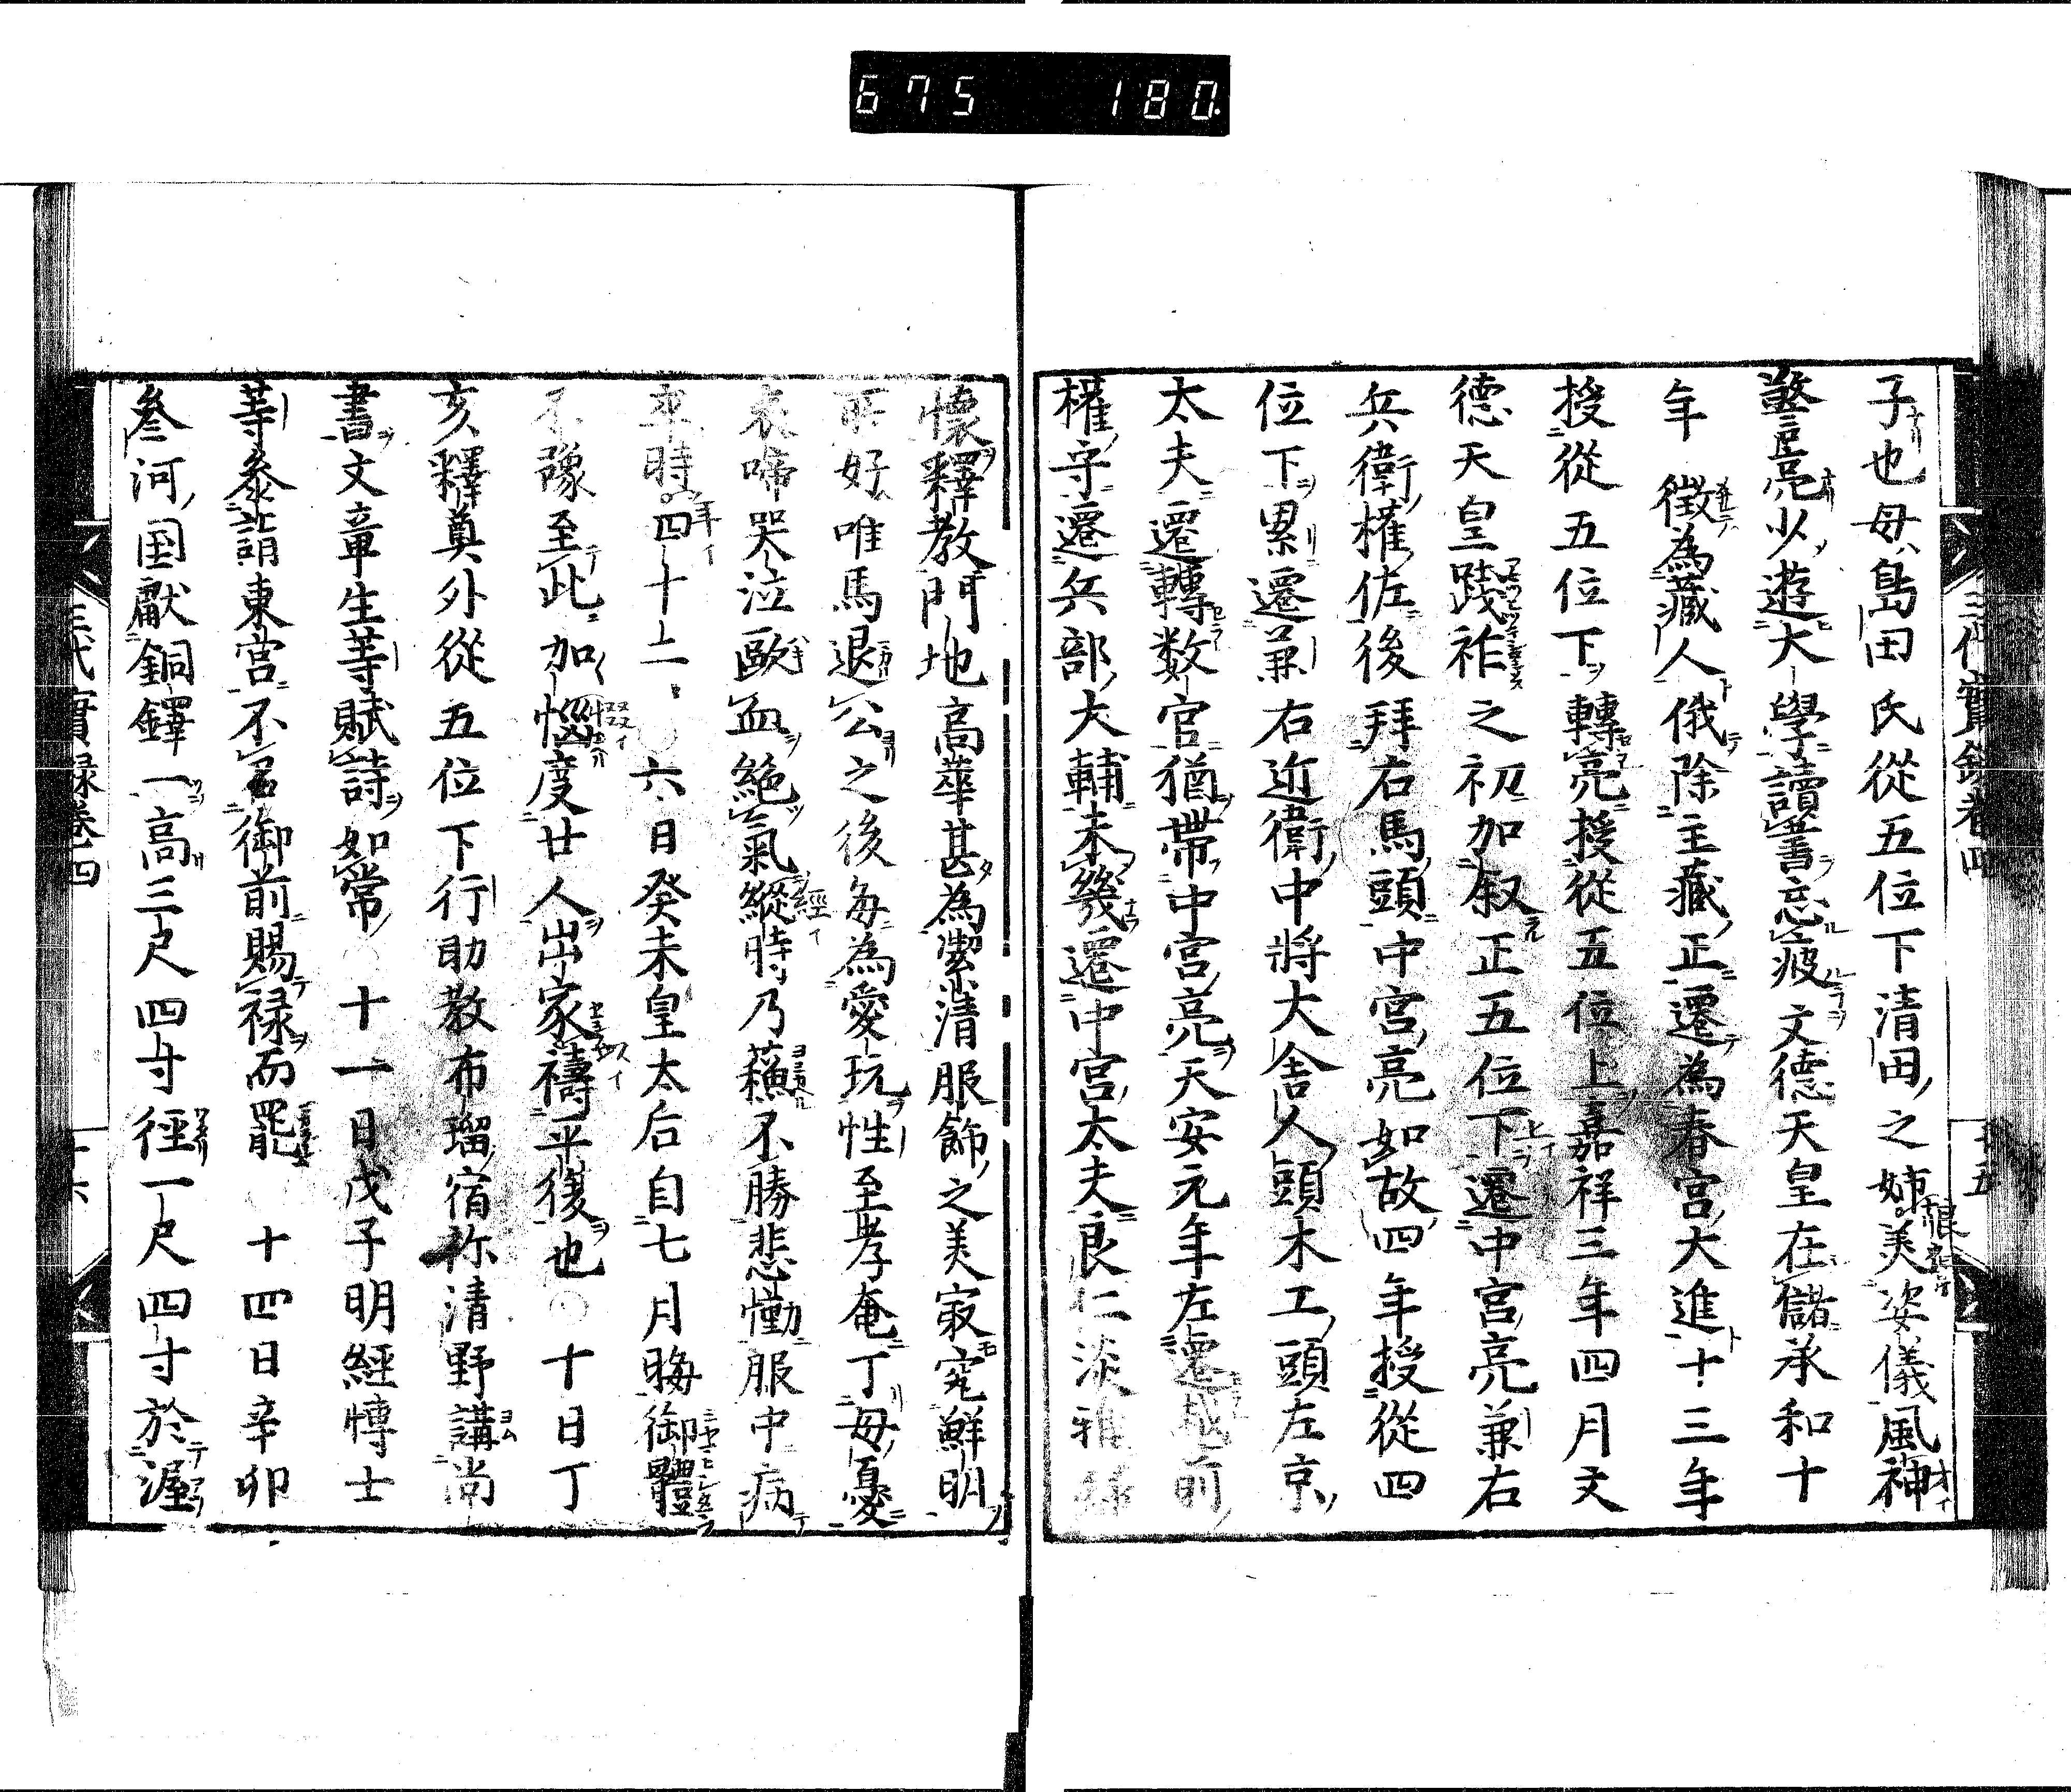 675 180
子也母島田氏從五位下清田之姉美姿儀風神
警亮少遊大學讀書忘疲文德天皇在儲承和十
年徴為藏人俄除主藏正遷為春宮大進十三年
授從五位下轉亮授從五位上嘉祥三年四月文
德天皇踐祚之初加叙正五位下遷中宮亮兼右
兵衛權佐後拜右馬頭中宮亮如故四年授從四
位下累遷兼右近衛中將大舎人頭木工頭左京
太夫遷轉数官猶帶中宮亮天安元年左遷越前
權守遷兵部大輔未幾遷中宮太夫良仁淡雅
懷釋教門地高華甚為潔清服飾之美寂寃鮮明
所好唯馬退公之後每為愛玩性至孝奄丁母憂
哀啼哭泣歐血絶氣縱時乃蘓不勝悲慟服中病
卒時四十二○六日癸未皇太后自七月晦御體
不豫至此加惱度廿人出家禱平復也○十日丁
亥釋奠外從五位下行助教布瑠宿祢清野講尚
書文章生等賦詩如常○十一日戊子明經博士
等參詣東宮不召御前賜禄而罷 十四日辛卯
叄河国獻銅鐸一高三尺四寸徑一尺四寸於渥
三代實録卷四
三代實録卷四